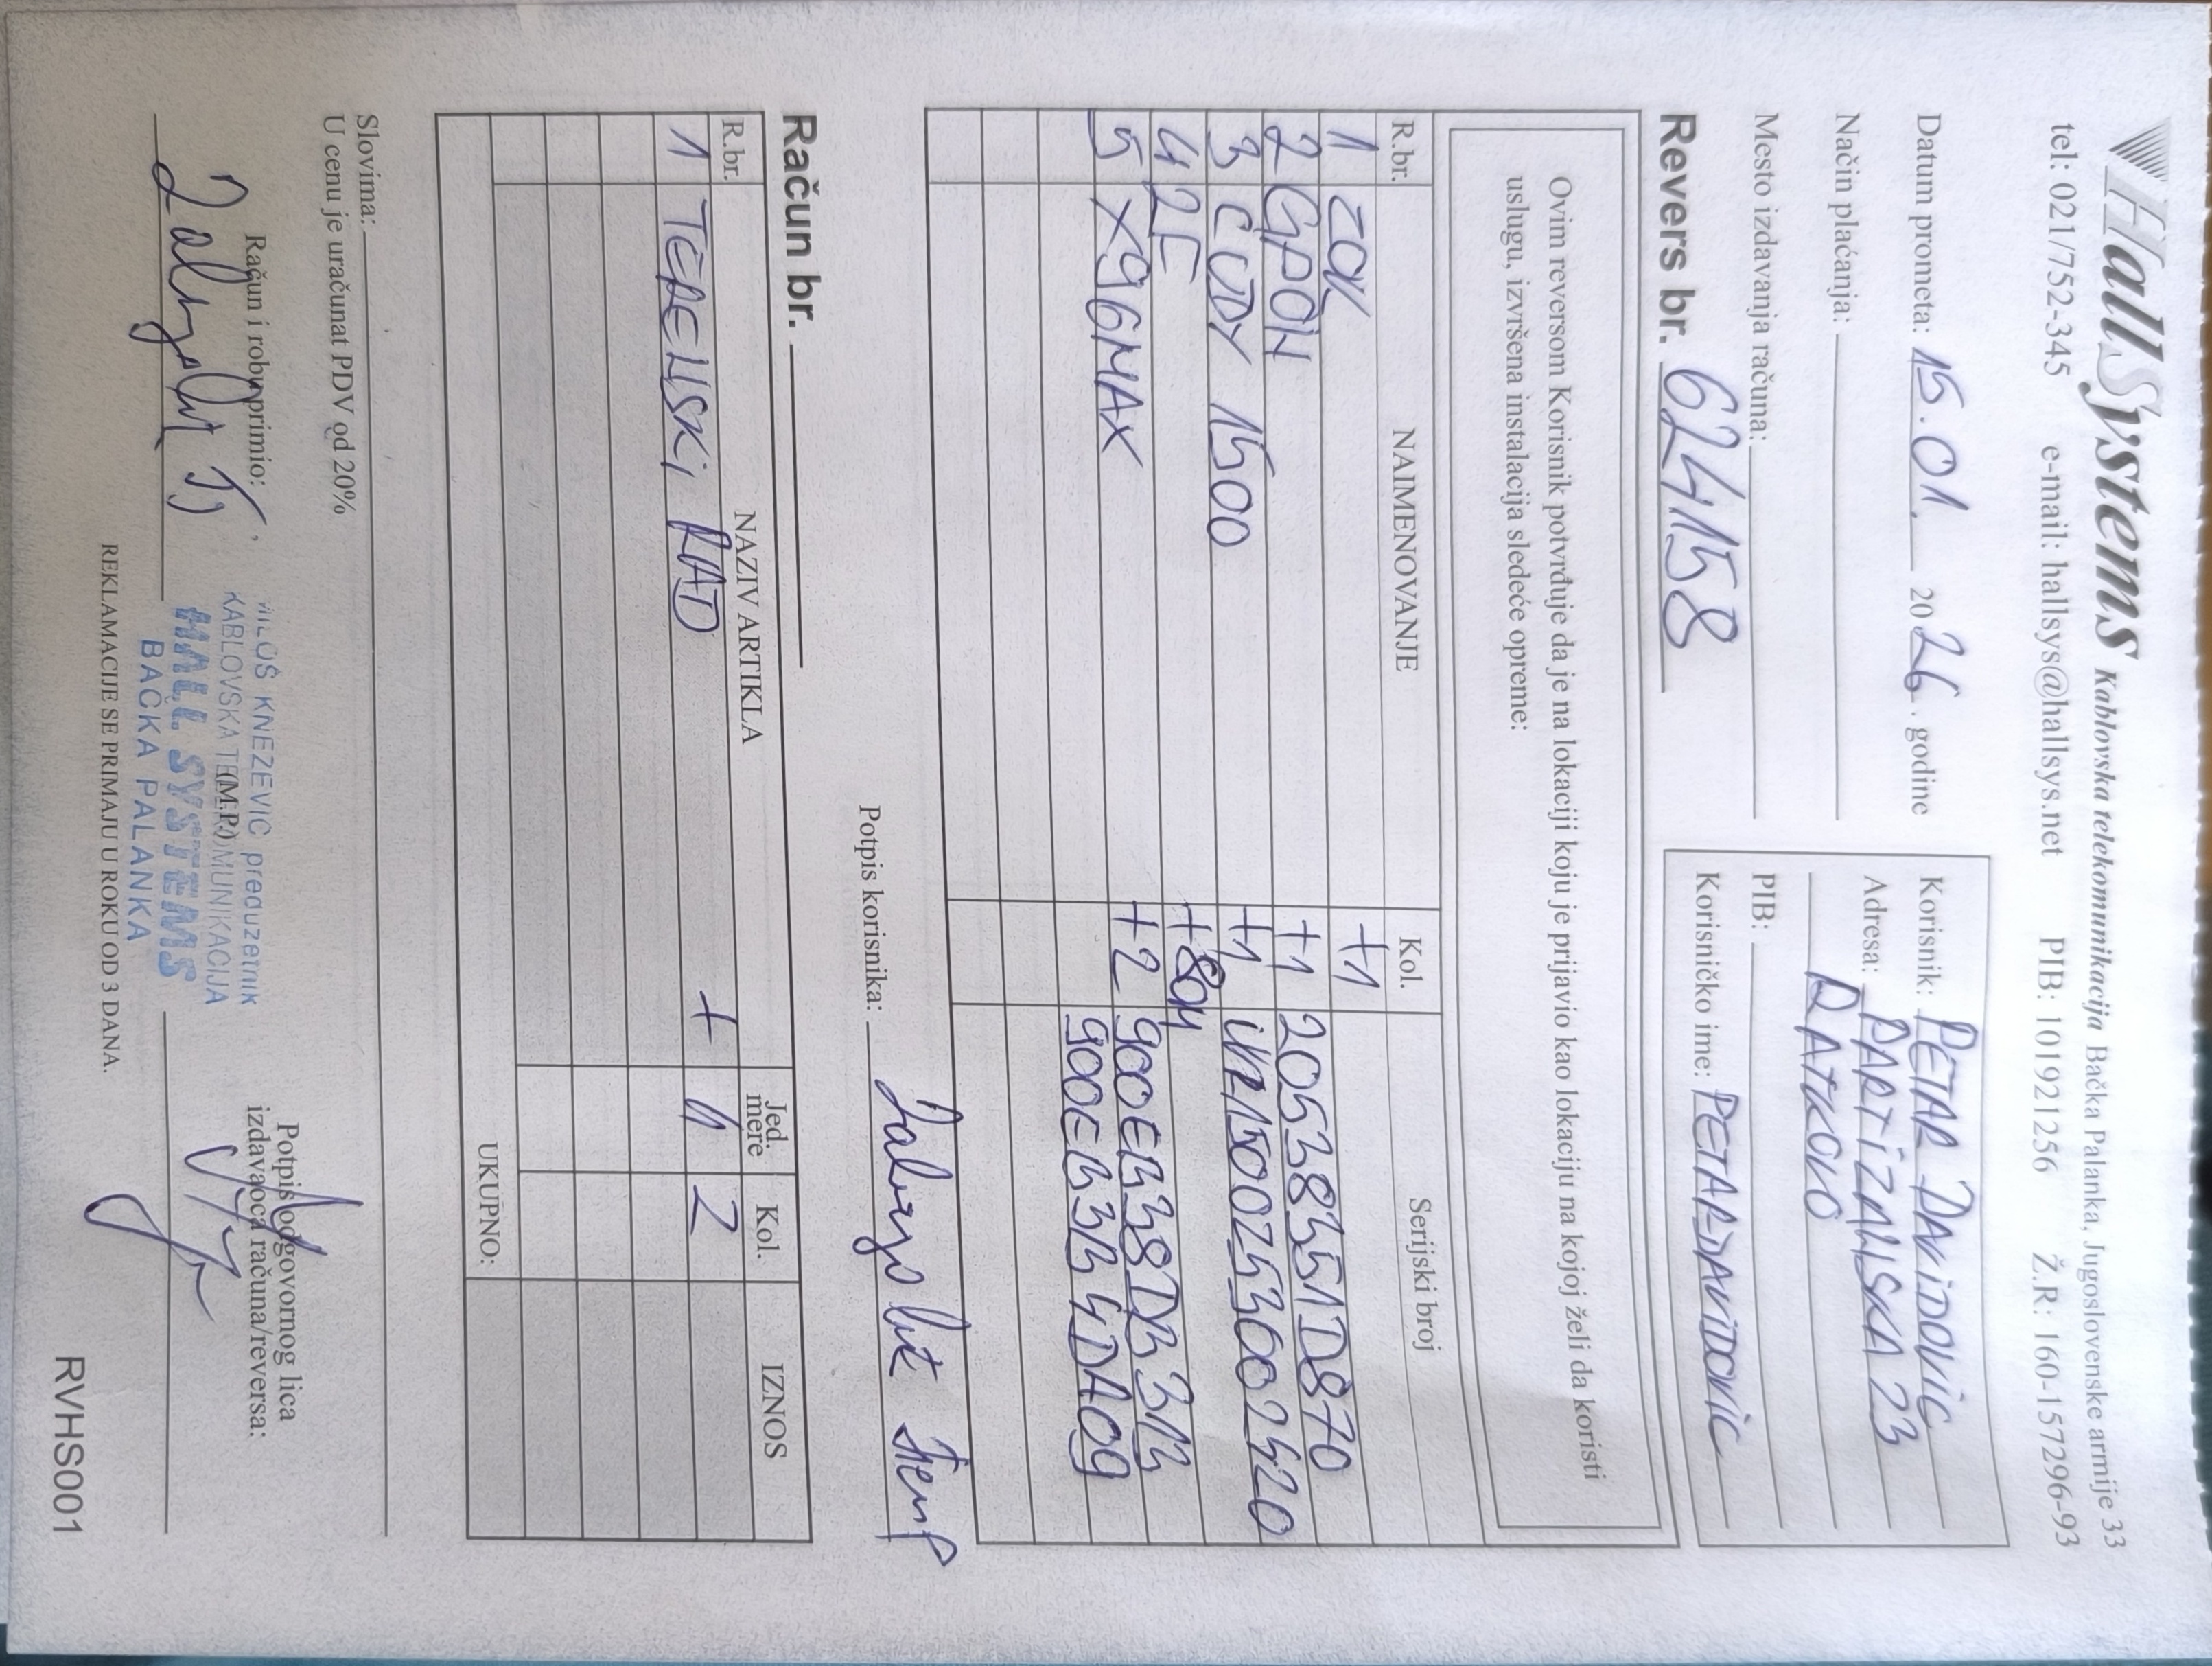 HallSystems Kablovska telekomunikacija Bačka Palanka, Jugoslovenske armije 33
tel: 021/752-345 e-mail: hallsys@hallsys.net PIB: 101921256 Ž.R: 160-157296-93
Datum prometa: 15.01. 2026. godine
Način plaćanja:
Mesto izdavanja računa:
Revers br. 624158
Korisnik: PETAR DAViDOViC
Adresa: PARTiZANSKA 23
RATKOVO
PIB:
Korisničko ime: PETARDAVIDOVIC
Ovim reversom Korisnik potvrđuje da je na lokaciji koju je prijavio kao lokaciju na kojoj želi da koristi
uslugu, izvršena instalacija sledeće opreme:
R.br. NAIMENOVANJE Kol. Serijski broj
1 ZOK +1
2 GPON +1 205383551D870
3 CUDY 1500 +1
4 2F +80M
5 X96MAX +2 900EB38DB31B
900EB3B4DA09
Potpis korisnika:
Račun br.
R.br. NAZIV ARTIKLA Jed. mere Kol. IZNOS
1 TERENSKi RAD + h 2
UKUPNO:
Slovima:
U cenu je uračunat PDV od 20%
Račun i robu primio:
MILOŠ KNEŽEVIĆ preduzetnik
KABLOVSKA TELEKOMUNIKACIJA
(M.P.)
HALL SYSTEMS
BAČKA PALANKA
Potpis odgovornog lica
izdavaoca računa/reversa:
REKLAMACIJE SE PRIMAJU U ROKU OD 3 DANA.
RVHS001